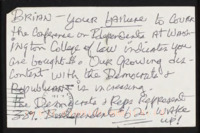 BRIAN - YOUR FAILURE TO COVER
THE CONFERENCE ON INDEPENDENTS AT WASH-
INGTON COLLEGE OF LAW INDICATES YOU
ARE BOUGHT & - OUR GROWING DIS-
CONTENT WITH THE DEMOCRATS &
REPUBLICANS IS INCREASING
THE DEMOCRATS & REPS REPRESENT
38% INDEPENDENTS 62% WAKE
UP!